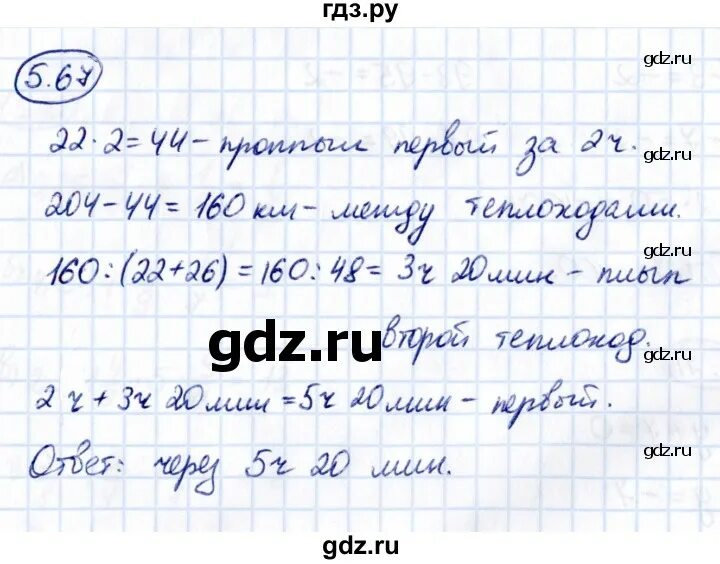 гдз.ру
5.67
gdz.ru
22·2=44 – проплыл первый за 2ч.
gdz.ru
204-44=160 км – между теплоходами.
gdz.ru
160:(22+26)=160:48= 3ч 20мин – плыл
gdz.ru
второй теплоход.
gdz.ru
2ч + 3ч 20мин = 5ч 20мин – первый.
gdz.ru
Ответ: через 5ч 20 мин.
gdz.ru
gdz.ru